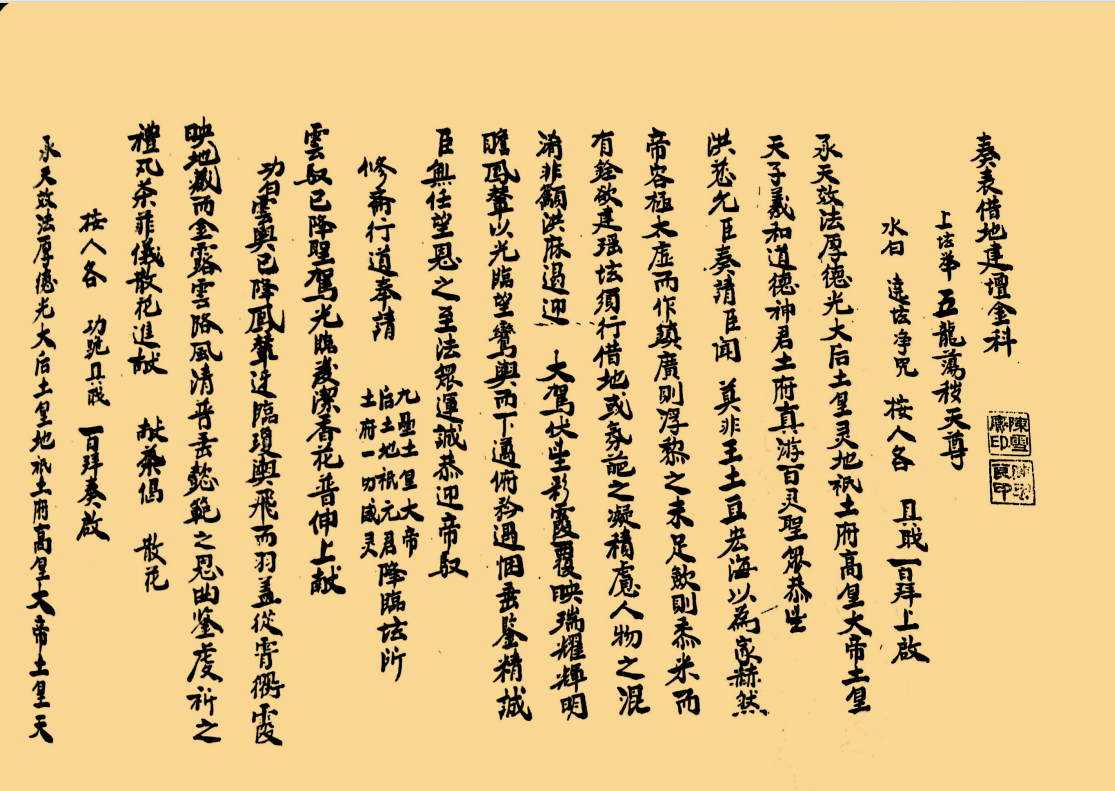 奏表借地建壇金科
上坛举 五龍蕩穢天尊
水白 遠坛净咒 按人各 具戝 一百拜上啟
承天效法厚德光大后土皇灵地祇土府高皇大帝土皇
天子義和道德神君土府真游百灵聖眾恭望
洪慈允臣奏請臣闻 莫非王土亘宏海以為家赫然
帝容極太虚而作鎮廣則浮黎之未足歛則黍米而
有銓欲建瑶坛須行借地或氛葩之凝積慮人物之混
淆非籲洪庥遏迎 大駕伏望彩霞覆映瑞耀輝明
瞻鳳輦以光臨望鸞輿而下邁俯矜過悃垂鑒精誠
臣無任望恩之至法眾運誠恭迎帝馭
修斋行道奉請 九壘土皇大帝
后土地祇元君降臨坛所
土府一切威灵
雲馭已降聖駕光臨爰潔香花普伸上献
功白雲輿已降鳳輦迂臨瓊輿飛而羽盖從霄衢霞
映地藏而金露雲路風清普垂懿範之恩曲鉴虔祈之
禮凡茶菲儀散花進献 献茶偈 散花
按人各 功號具戝 一百拜奏啟
承天效法厚德光大后土皇地祇土府高皇大帝土皇天